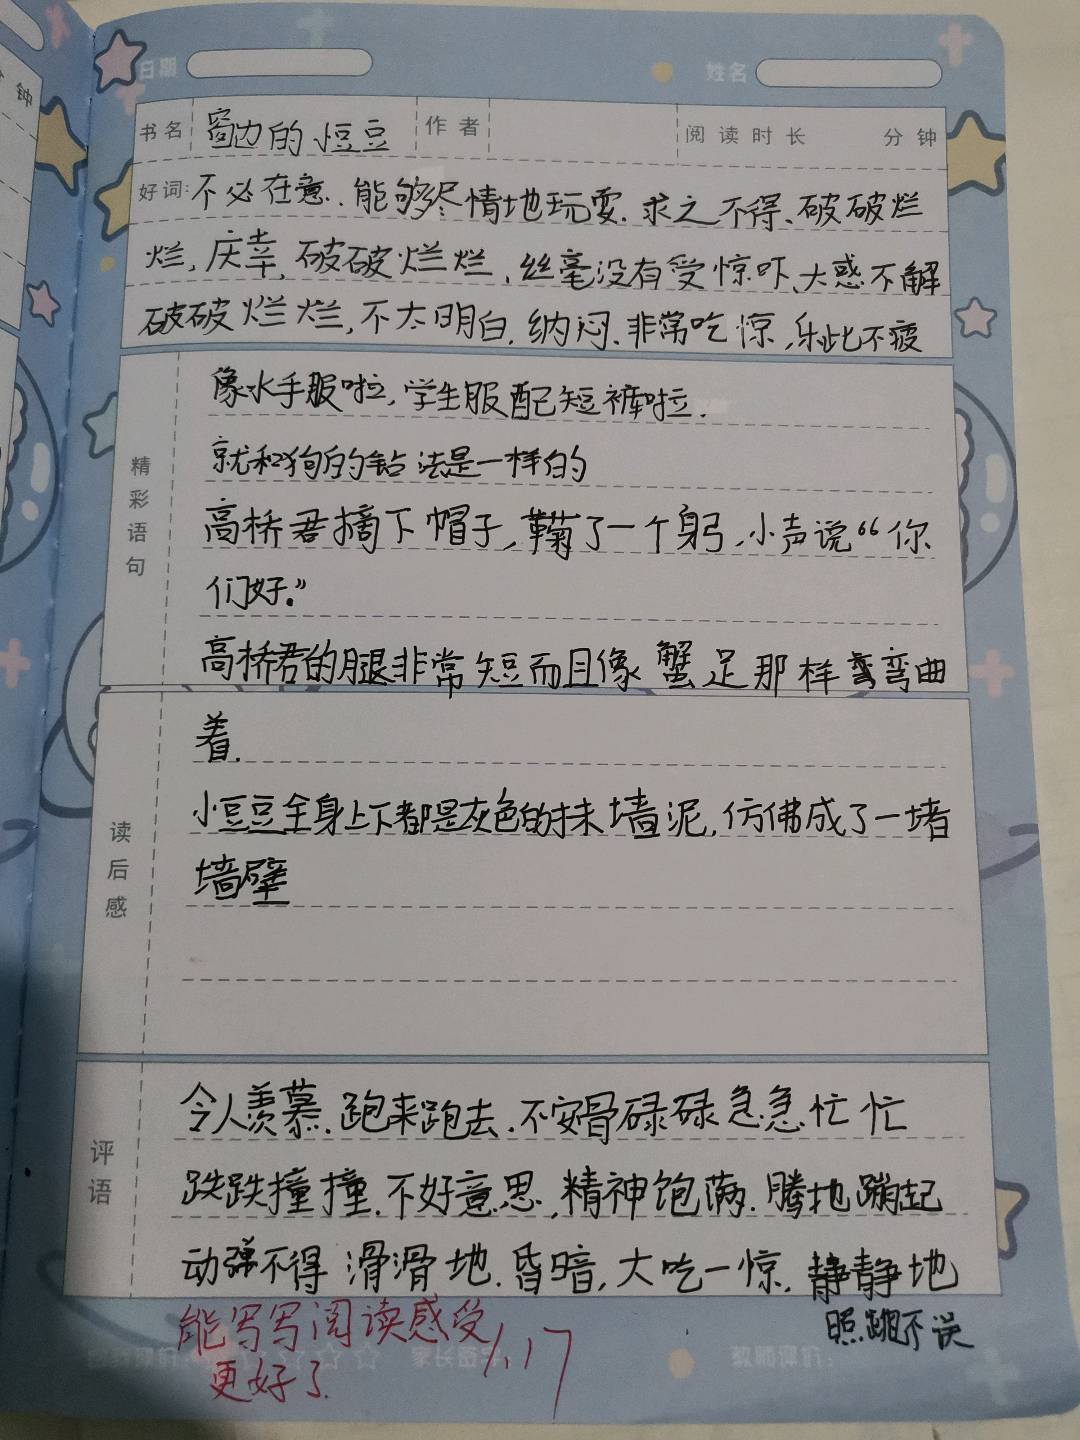 钟
日期 姓名
书名 窗边的小豆豆 作者 阅读时长 分钟
好词: 不必在意、能够尽情地玩耍、求之不得、破破烂
烂,庆幸,破破烂烂、丝毫没有受惊吓、大惑不解
破破烂烂,不太明白,纳闷、非常吃惊,乐此不疲
精彩语句
像水手服啦,学生服配短裤啦.
就和狗的钻法是一样的
高桥君摘下帽子,鞠了一个躬,小声说“你
们好。”
高桥君的腿非常短而且像蟹足那样弯弯曲
读后感
着.
小豆豆全身上下都是灰色的抹墙泥,仿佛成了一堵
墙壁
评语
令人羡慕、跑来跑去、不安骨碌碌急急忙忙
跌跌撞撞、不好意思,精神饱满、腾地蹦起
动弹不得 滑滑地、昏暗,大吃一惊、静静地
照跳不误
能写写阅读感受
更好了
1.17
家长签字: 教师评价: